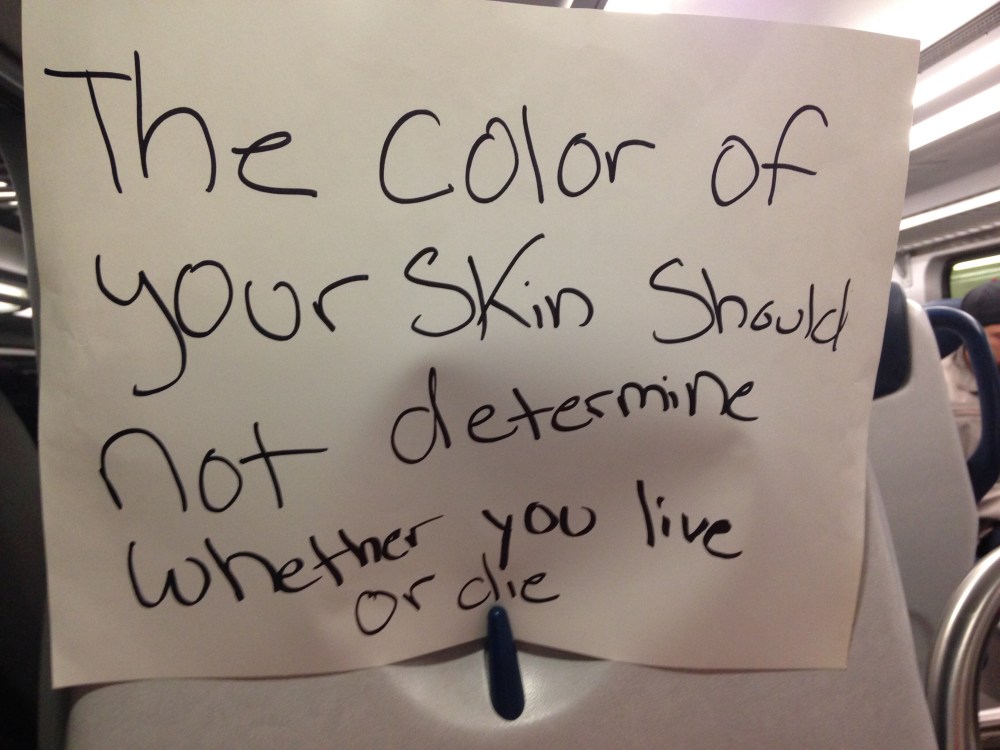 The color of
your Skin Should
not determine
whether you live
or die